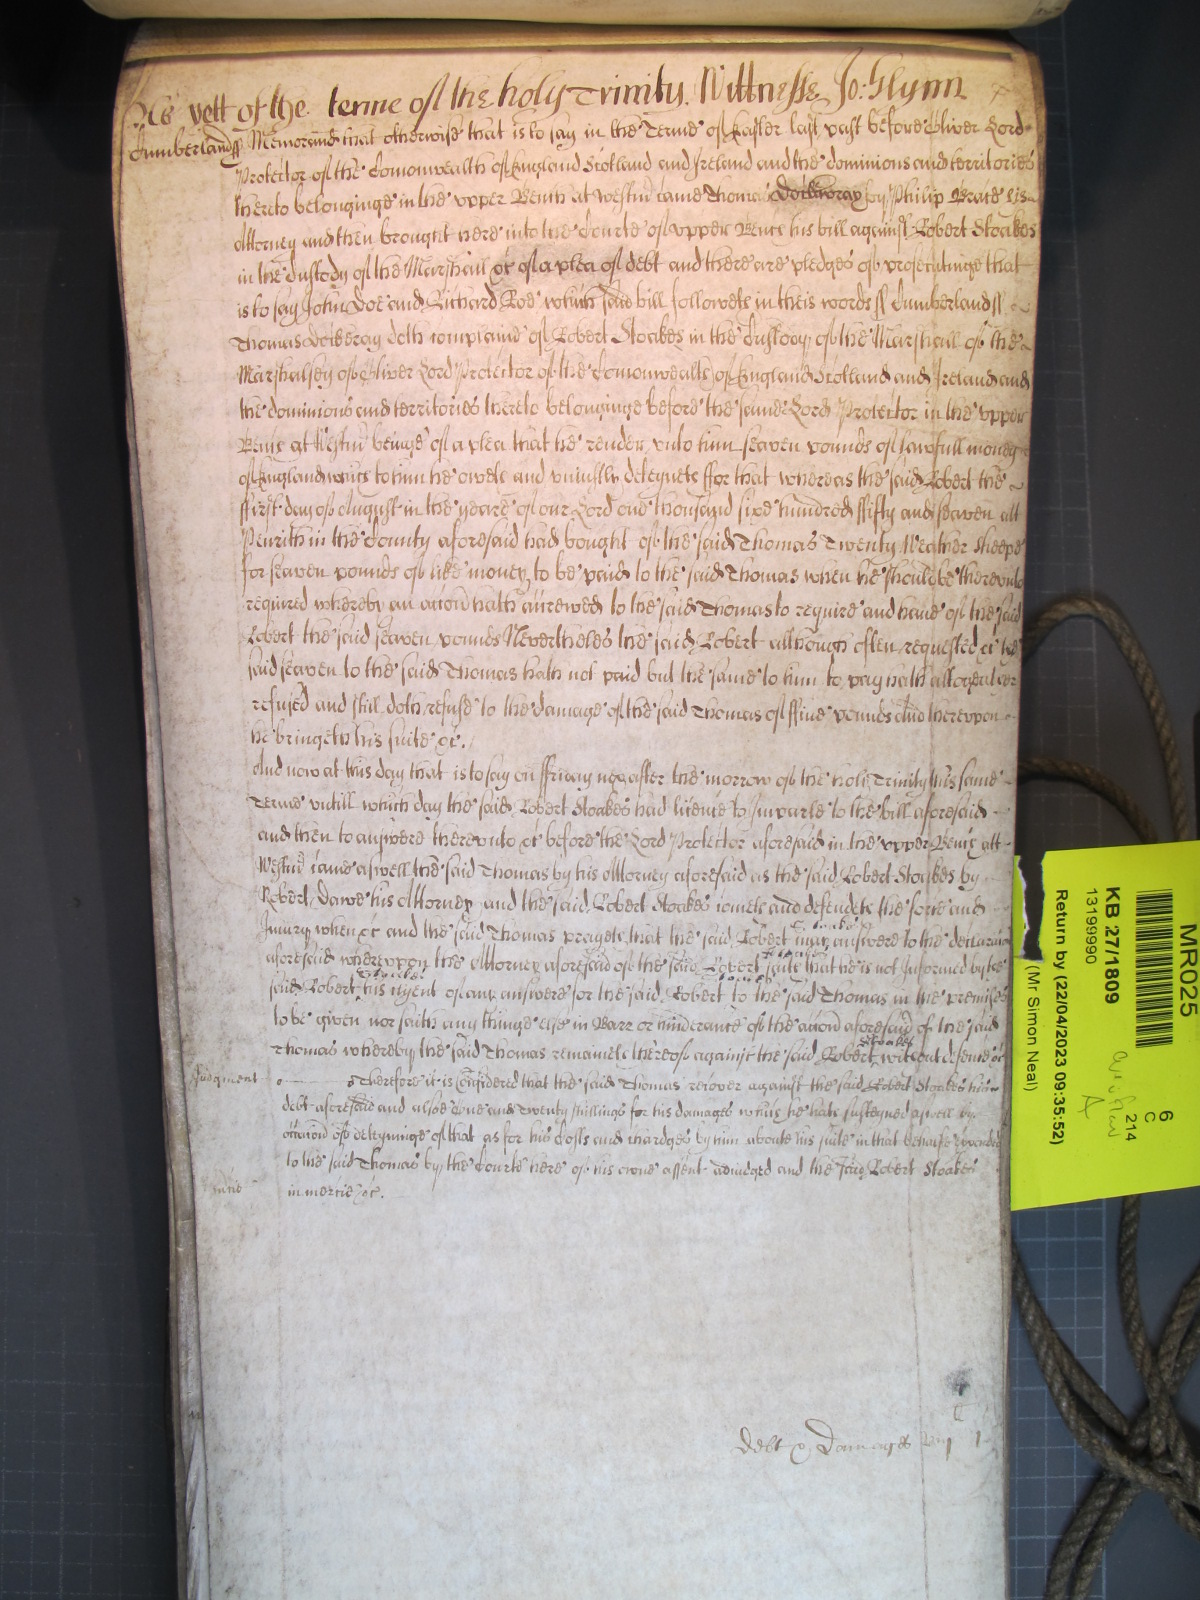 As yett of the terme of the holy Trinity Wittnesse Jo: Glynn
Cumberland ss Memorand that otherwise that is to say in the Terme of Easter last past before Oliver Lord
Protector of the Comonwealth of England Scotland and Ireland and the dominions and territories
thereto belonginge in the upper Bench at Westm came Thomas by Philip his
Attorney and then brought here into the Courte of upper Bench his bill against Robert Stoakes
in the Custody of the Marshall &c of a plea of debt and there are pledges of prosecutinge that
is to say John Doe and Richard Roe which said bill followeth in theis words ss Cumberland ss
Thomas doth complaine of Robert Stoakes in the Custody of the Marshall of the
Marshalsey of Oliver Lord Protector of the Comonwealth of England Scotland and Ireland and
the dominions and territories thereto belonginge before the same Lord Protector in the upper
Bench at Westm beinge of a plea that he render unto him seaven pounds of lawfull money
of England which to him he oweth and uniustly deteyneth ffor that whereas the said Robert the
ffirst day of August in the yeare of our Lord one thousand sixe hundred ffifty and seaven att
Penrith in the County aforesaid had bought of the said Thomas Twenty Weather Sheepe
for seaven pounds of like money to be paid to the said Thomas when he should be thereunto
required whereby an accon hath accrewed to the said Thomas to require and have of the said
Robert the said seaven pounds Nevertheles the said Robert although often requested &c the
said seaven to the said Thomas hath not paid but the same to him to pay hath altogeather
refused and still doth refuse to the damage of the said Thomas of ffive pounds And thereupon
he bringeth his suite &c.
And now at this day that is to say on ffriday next after the morrow of the holi Trinity this same
Terme untill which day the said Robert Stoakes had licence to Imparle to the bill aforesaid
and then to answere thereunto &c before the Lord Protector aforesaid in the upper Bench att
Westm came aswell the said Thomas by his Attorney aforesaid as the said Robert Stoakes by
Robert Dawe his Attorney and the said Robert Stoakes cometh and defendeth the force and
Injury when &c and the said Thomas prayeth that the said Robert Stoakes may answere to the declaracon
aforesaid whereupon the Attorney aforesaid of the said Robert Stoakes saith that he is not Informed by the
said Robert Stoakes his clyent of any answere for the said Robert Stoakes to the said Thomas in the premises
to be given nor saith any thinge else in Barr or hinderance of the accon aforesaid of the said
Thomas whereby the said Thomas remaineth thereof against the said Robert Stoakes without defence &c
Judgment Therefore it is Considered that the said Thomas recover against the said Robert Stoakes his
debt aforesaid and alsoe One and Twenty shillings for his damages which he hath susteyned aswell by
occacion of deteyninge of that as for his Costs and chardges by him aboute his suite in that behalfe expended
to the said Thomas by the Courte here of his owne assent adiudged and the said Robert Stoakes
in mercie &c.
Debt & Damages
MR025
KB 27/1809
13199990
Return by (22/04/2023 09:35:52)
(Mr Simon Neal)
6
C
214
A